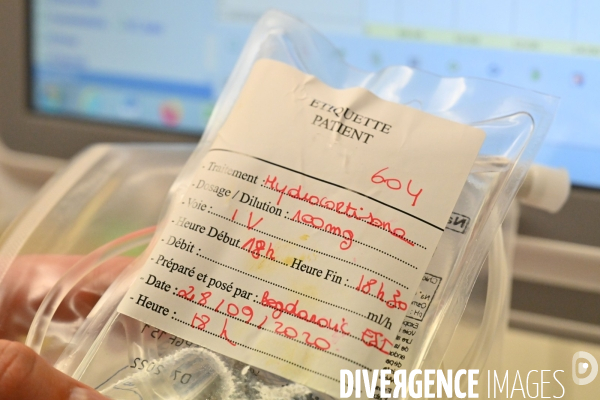 ETIQUETTE
PATIENT
604
- Traitement : Hydrocortisone
- Dosage / Dilution : 100mg
- Voie : IV
- Heure Début : 18h Heure Fin : 18h30
- Débit : ml/h
- Préparé et posé par :
- Date : 28/09/2020
- Heure : 18h
DIVERGENCE IMAGES